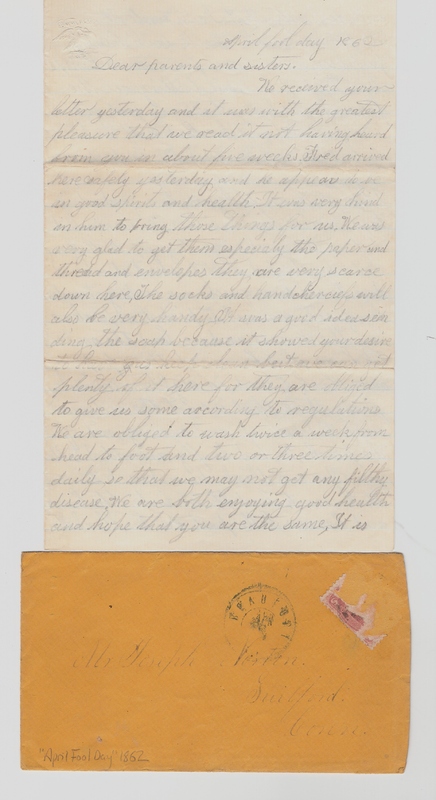 April fool day 1862
Dear parents and sisters.
We received your
letter yesterday and it was with the greatest
pleasure that we read it not having heard
from you in about five weeks. Fred arrived
here safely yesterday and he appears to be
in good spirits and health. It was very kind
in him to bring those things for us. We was
very glad to get them especialy the paper and
thread and envelopes they are very scarce
down here. The socks and handcherceifs will
also be very handy. It was a good idea sen
ding the soap because it showed your desire
to but we can get
plenty of it here for they are obliged
to give us some acording to regulations
We are obliged to wash twice a week from
head to foot and two or three times
daily so that we may not get any filthy
disease. We are both enjoying good health
and hope that you are the same, It is
Mr Norton.
Guilford.
Conn.
"April Fool Day" 1862